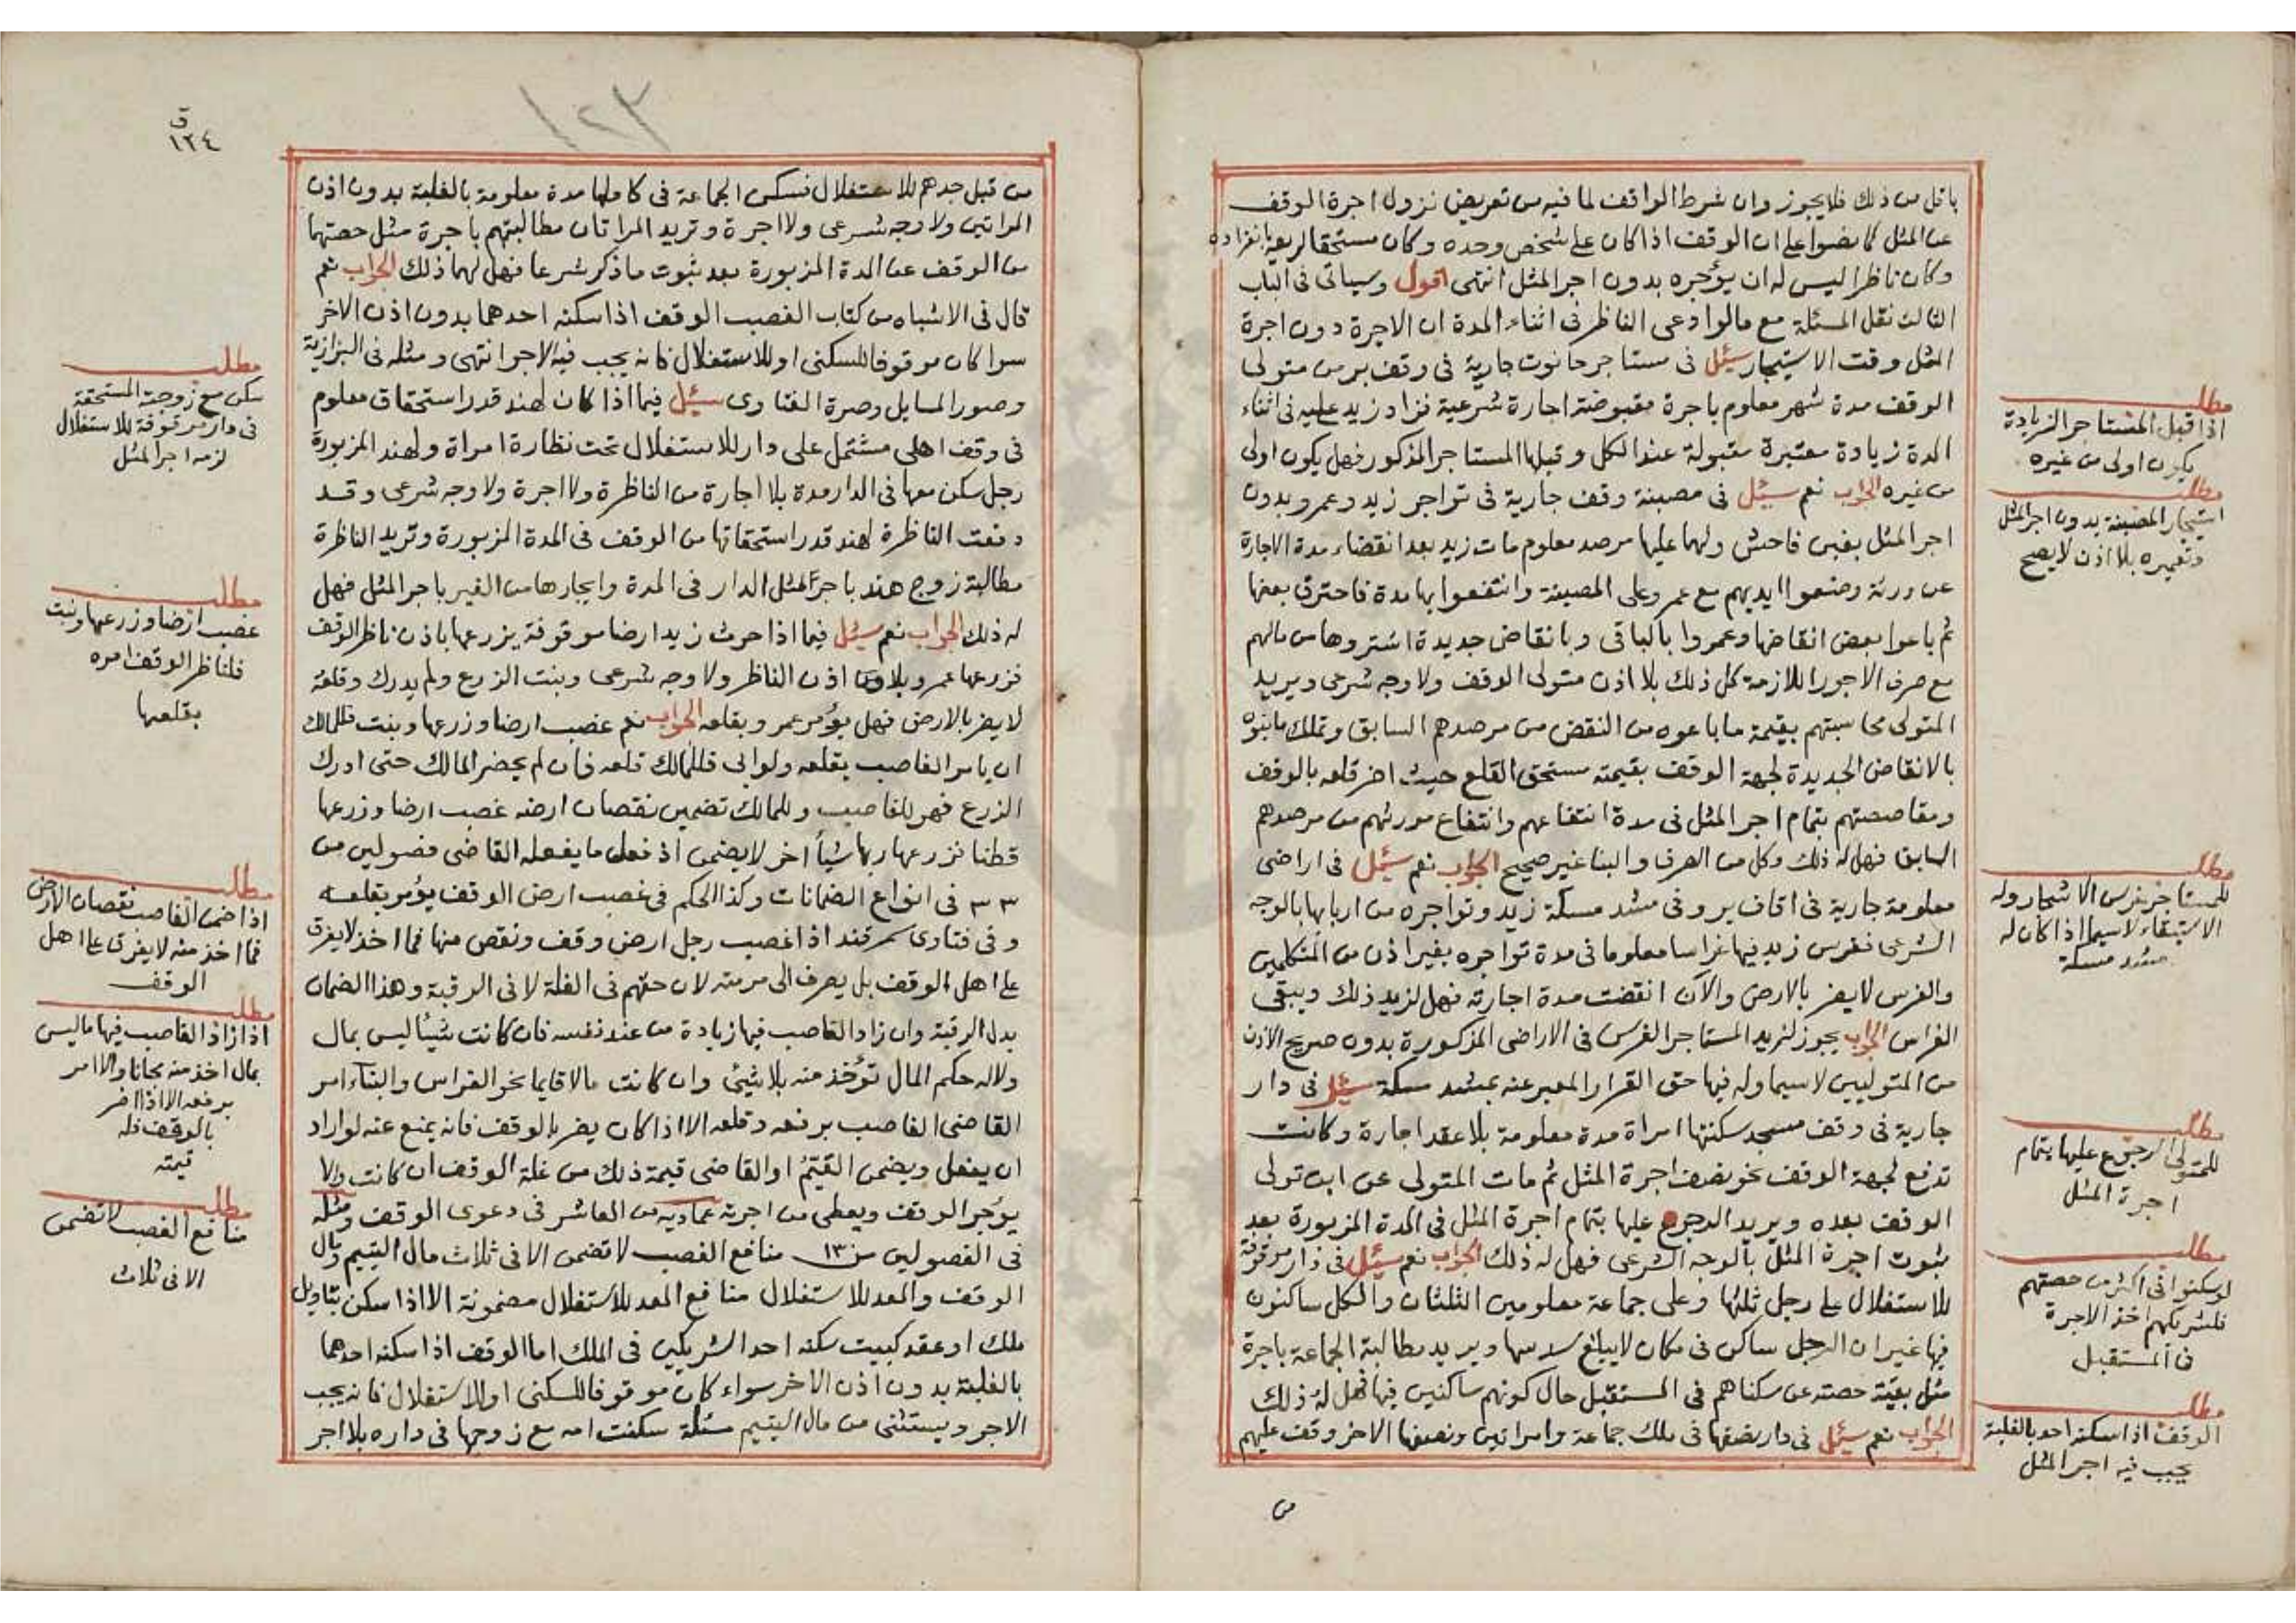 باقل من ذلك فلا يجوز وان شرط الواقف لما فيه من تعريض نزول اجرة الوقف
عن المثل كما نصوا على ان الوقف اذا كان على شخص وحده وكان مستحقا لريعه بانفراده
وكان ناظرا ليس له ان يؤجره بدون اجر المثل انتهى اقول وسياتى فى الباب
الثالث نقل المسئلة مع ما لو ادعى الناظر فى اثناء المدة ان الاجرة دون اجرة
المثل وقت الاستيجار سئل فى مستاجر حانوت جارية فى وقف بر من متولى
الوقف مدة شهر معلوم باجرة مقبوضة اجارة شرعية فزاد زيد عليه فى اثناء
المدة زيادة معتبرة مقبولة عند الكل وقبلها المستاجر المذكور فهل يكون اولى
من غيره الجواب نعم سئل فى مصبنة وقف جارية فى تواجر زيد وعمرو بدون
اجر المثل بغبن فاحش ولهما عليها مرصد معلوم مات زيد بعد انقضاء مدة الاجارة
عن ورثة وضعوا ايديهم مع عمرو على المصبنة وانتفعوا بها مدة فاحترق بعضها
ثم باعوا بعض انقاضها وعمروا بالباقى وبانقاض جديدة اشتروها من مالهم
مع صرف الاجور اللازمة كل ذلك بلا اذن متولى الوقف ولا وجه شرعى ويريد
المتولى محاسبتهم بقيمة ما باعوه من النقض من مرصدهم السابق وتملك ما بنوه
بالانقاض الجديدة لجهة الوقف بقيمته مستحق القلع حيث اضر قلعه بالوقف
ومقاصصتهم بتمام اجر المثل فى مدة انتفاعهم وانتفاع مورثهم من مرصدهم
السابق فهل له ذلك وكل من الصرف والبنا غير صحيح الجواب نعم سئل فى اراضى
معلومة جارية فى اقاف بر وفى مشد مسكة زيد وتواجره من اربابها بالوجه
الشرعى فغرس زيد فيها غراسا معلوما فى مدة تواجره بغير اذن من المتكلمين
والغرس لا يضر بالارض والآن انقضت مدة اجارته فهل لزيد ذلك ويبقى
الغراس الجواب يجوز لزيد المستاجر الغرس فى الاراضى المذكورة بدون صريح الاذن
من المتوليين لا سيما وله فيها حق القرار المعبر عنه بمشد مسكة سئل فى دار
جارية فى وقف مسجد سكنتها امراة مدة معلومة بلا عقد اجارة وكانت
تدفع لجهة الوقف نحو نصف اجرة المثل ثم مات المتولى عن ابن تولى
الوقف بعده ويريد الرجوع عليها بتمام اجرة المثل فى المدة المزبورة بعد
ثبوت اجرة المثل بالوجه الشرعى فهل له ذلك الجواب نعم سئل فى دار موقوفة
للاستغلال على رجل ثلثها وعلى جماعة معلومين الثلثان والكل ساكنون
فيها غير ان الرجل ساكن فى مكان لا يبلغ سدسها ويريد مطالبة الجماعة باجرة
مثل بقية حصته عن سكناهم فى المستقبل حال كونهم ساكنين فيها فهل له ذلك
الجواب نعم سئل فى دار نصفها فى ملك جماعة وامراتين ونصفها الاخر وقف عليهم
من
مطلب
اذا قبل المستاجر الزيادة
يكون اولى من غيره
مطلب
استيجار المصبنة بدون اجر المثل
وتعميره بلا اذن لا يصح
مطلب
للمستاجر غرس الاشجار وله
الاستبقاء لا سيما اذا كان له
مشد مسكة
مطلب
للمتولى الرجوع عليها بتمام
اجرة المثل
مطلب
لو سكنوا فى اكثر من حصتهم
فلشريكهم اخذ الاجرة
فى المستقبل
مطلب
الوقف اذا سكنه احد بالغلبة
يجب فيه اجر المثل
١٢٣
ق
١٢٤
من قبل جدهم للاستغلال فسكن الجماعة فى كاملها مدة معلومة بالغلبة بدون اذن
المراتين ولا وجه شرعى ولا اجرة وتريد المراتان مطالبتهم باجرة مثل حصتهما
من الوقف عن المدة المزبورة بعد ثبوت ما ذكر شرعا فهل لهما ذلك الجواب نعم
قال فى الاشباه من كتاب الغصب الوقف اذا سكنه احدهما بدون اذن الاخر
سوا كان موقوفا للسكنى او للاستغلال فانه يجب فيه الاجر انتهى ومثله فى البزازية
وصور المسايل وصرة الفتاوى سئل فيما اذا كان لهند قدر استحقاق معلوم
فى وقف اهلى مشتمل على دار للاستغلال تحت نظارة امراة ولهند المزبورة
رجل سكن معها فى الدار مدة بلا اجارة من الناظرة ولا اجرة ولا وجه شرعى وقد
دفعت الناظرة لهند قدر استحقاقها من الوقف فى المدة المزبورة وتريد الناظرة
مطالبة زوج هند باجر المثل الدار فى المدة وايجارها من الغير باجر المثل فهل
له ذلك الجواب نعم سئل فيما اذا حرث زيد ارضا موقوفة يزرعها باذن ناظر الوقف
فزرعها عمرو بلا اذن الناظر ولا وجه شرعى وبنت الزرع ولم يدرك وقلعه
لا يضر بالارض فهل يؤمر عمرو بقلعه الجواب نعم غصب ارضا وزرعها وبنت فللمالك
ان يامر الغاصب بقلعه ولو ابى فللمالك قلعه فان لم يحضر المالك حتى ادرك
الزرع فهو للغاصب وللمالك تضمين نقصان ارضه غصب ارضا وزرعها
قطنا فزرعها ربها شيأ اخر لا يضمن اذ فعل ما يفعله القاضى فصولين من
٣٣ فى انواع الضمانات وكذا الحكم فى غصب ارض الوقف يؤمر بقلعه
وفى فتاوى سمرقند اذا غصب رجل ارض وقف ونقص منها فما اخذ لا يفرق
على اهل الوقف بل يصرف الى مرمته لان حقهم فى الغلة لا فى الرقبة وهذا الضمان
بدل الرقبة وان زاد الغاصب فيها زيادة من عند نفسه فان كانت شيئا ليس بمال
ولا له حكم المال تؤخذ منه بلا شيئ وان كانت مالا قايما نحو الغراس والبناء امر
القاضى الغاصب برفعه وقلعه الا اذا كان يضر بالوقف فانه يمنع عنه لو اراد
ان يفعل ويضمن القيم او القاضى قيمة ذلك من غلة الوقف ان كانت والا
يؤجر الوقف ويعطى من اجرته عمادية من العاشر فى دعوى الوقف ومثله
فى الفصولين من ١٣ منافع الغصب لا تضمن الا فى ثلاث مال اليتيم ومال
الوقف والمعد للاستغلال منافع المعد للاستغلال مضمونة الا اذا سكن بتاويل
ملك او عقد كبيت سكنه احد الشريكين فى الملك اما الوقف اذا سكنه احدهما
بالغلبة بدون اذن الاخر سواء كان موقوفا للسكنى او للاستغلال فانه يجب
الاجر ويستثنى من مال اليتيم مسئلة سكنت امه مع زوجها فى داره بلا اجر
مطلب
سكن مع زوجته المستحقة
فى دار موقوفة للاستغلال
لزمه اجر المثل
مطلب
غصب ارضا وزرعها ونبت
فلناظر الوقف امره
بقلعها
مطلب
اذا ضمن الغاصب نقصان الارض
فما اخذ منه لا يفرق على اهل
الوقف
مطلب
اذا زاد الغاصب فيها ما ليس
بمال اخذ منه مجانا والا امر
برفعه الا اذا اضر
بالوقف فله
قيمته
مطلب
منافع الغصب لا تضمن
الا فى ثلاث